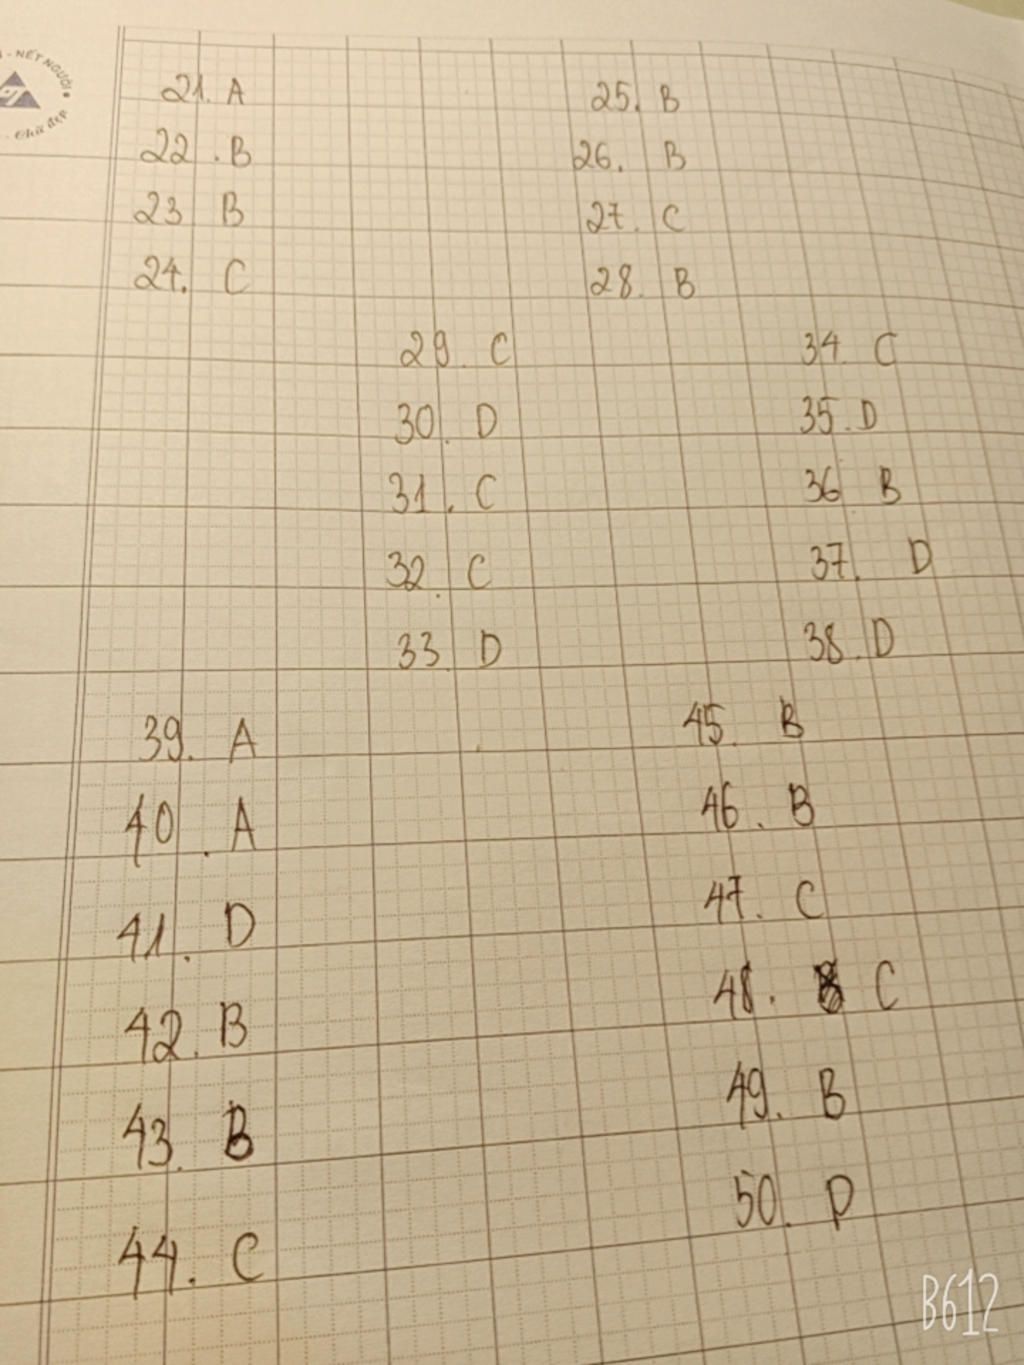 - NÉT NGƯỜI
Chữ đẹp
21. A
22. B
23 B
24. C
25. B
26. B
27. C
28. B
29. C
30. D
31. C
32. C
33. D
34. C
35. D
36 B
37. D
38. D
39. A
40. A
41. D
42. B
43. B
44. C
45. B
46. B
47. C
48. C
49. B
50. D
B612